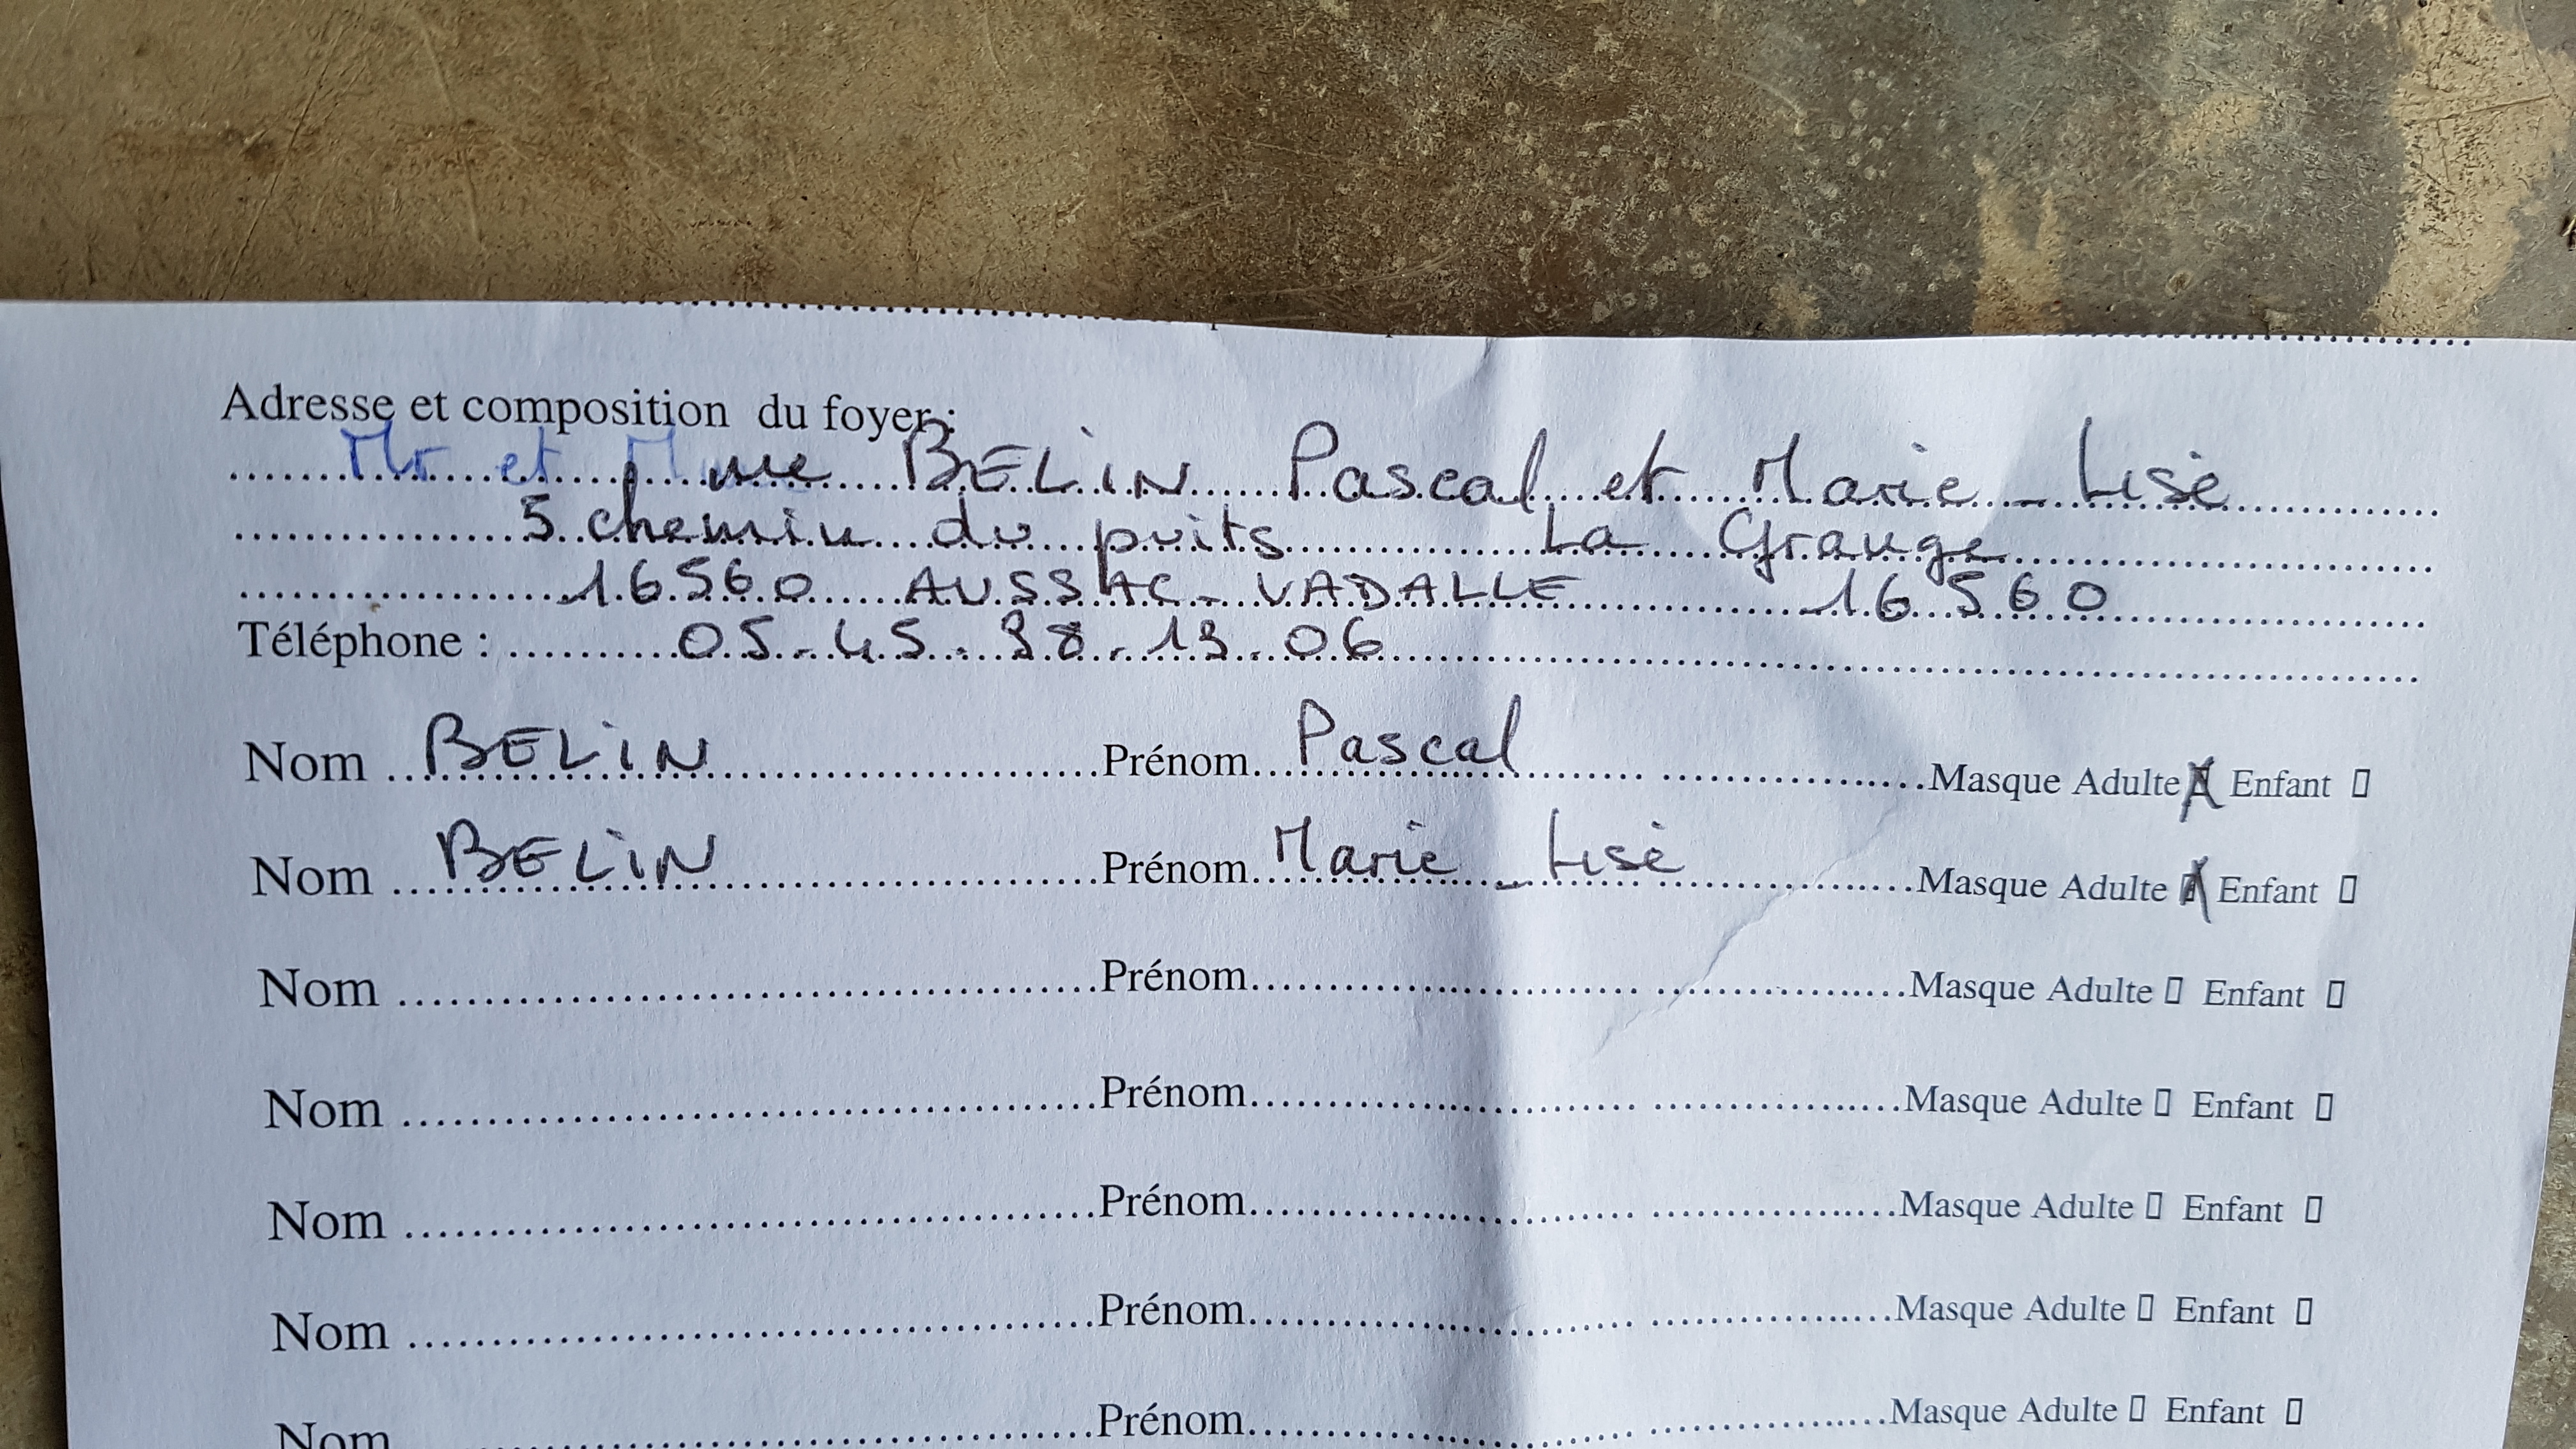 Adresse et composition du foyer :
Mr et Mme BELIN Pascal et Marie-Lise
5 chemin du puits La Grange
16560 AUSSAC-VADALLE 16560
Téléphone : 05-45-38-13-06
Nom BELIN Prénom Pascal Masque Adulte X Enfant ▯
Nom BELIN Prénom Marie-Lise Masque Adulte X Enfant ▯
Nom Prénom Masque Adulte ▯ Enfant ▯
Nom Prénom Masque Adulte ▯ Enfant ▯
Nom Prénom Masque Adulte ▯ Enfant ▯
Nom Prénom Masque Adulte ▯ Enfant ▯
Nom Prénom Masque Adulte ▯ Enfant ▯